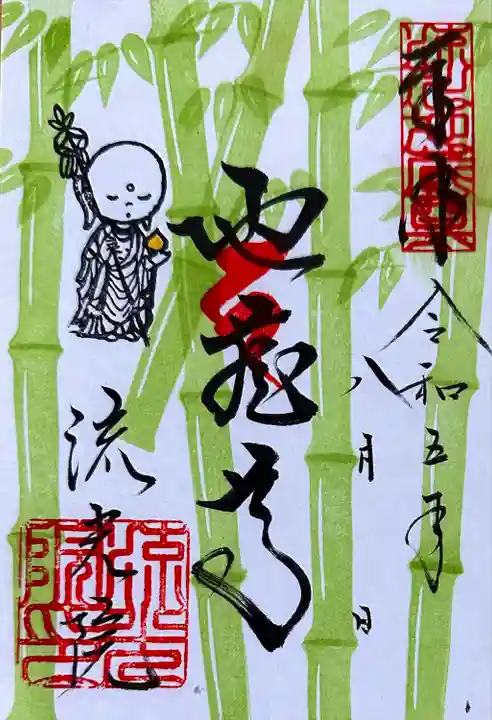 奉拝
令和五年
八月 日
地蔵尊
流光院